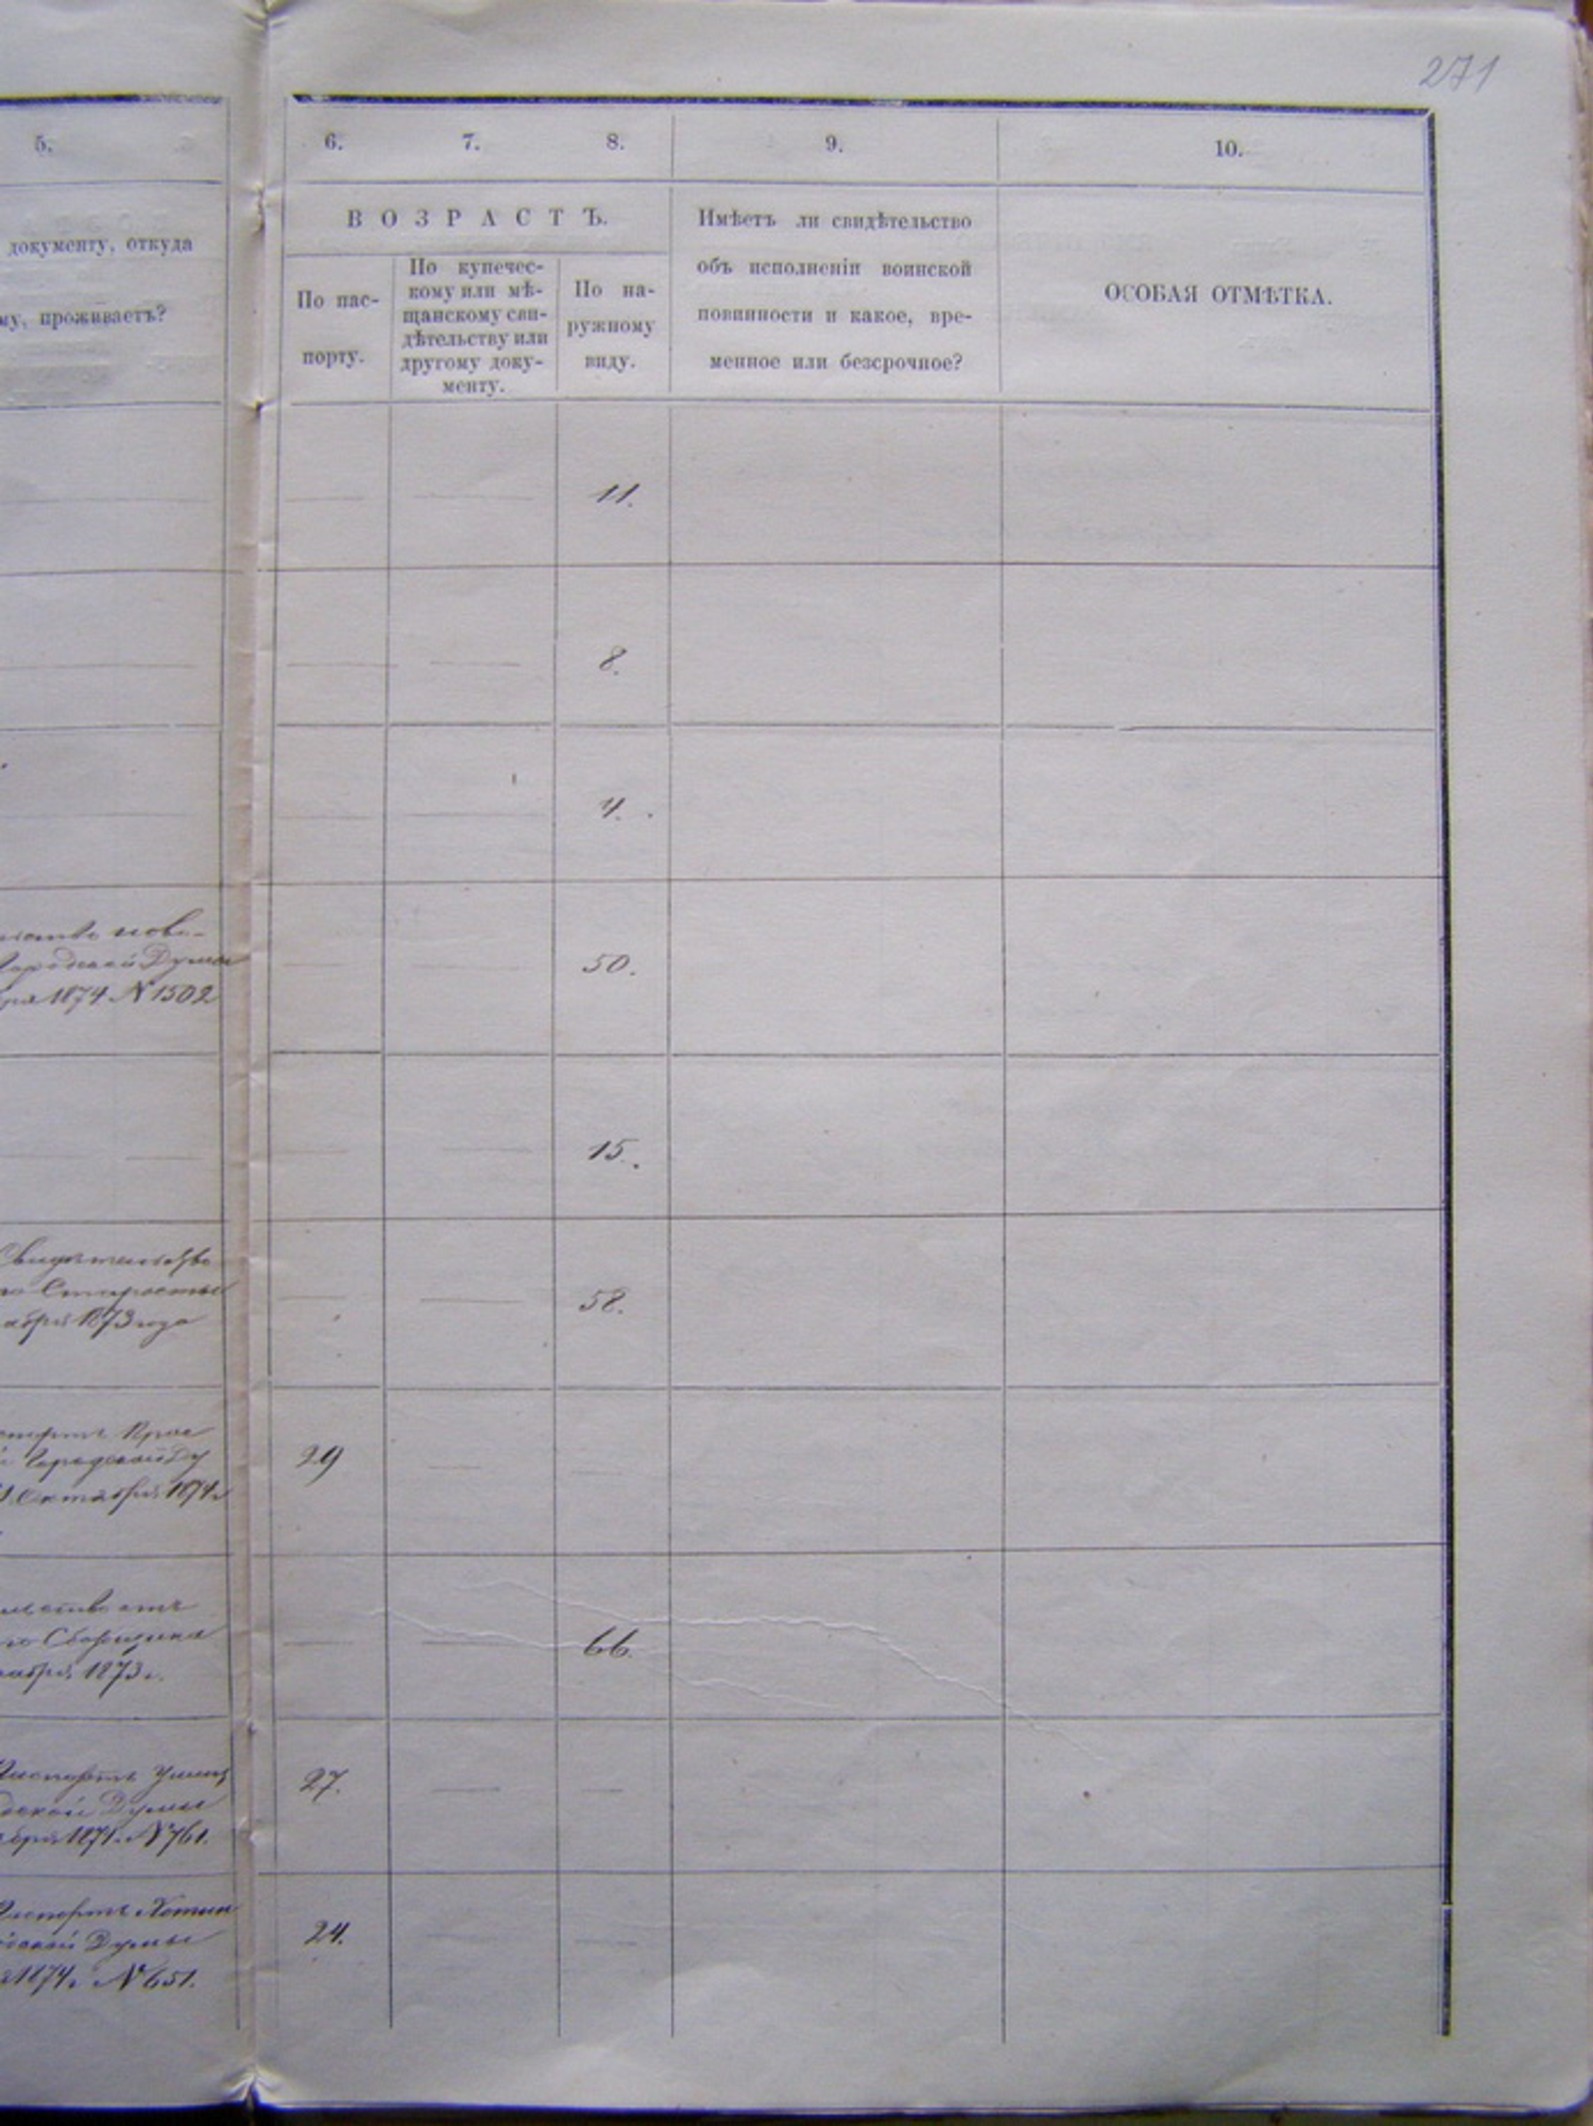 271
5.
6.
7.
8.
9.
10.
документу, откуда
му, проживаетъ?
ВОЗРАСТЪ.
По пас-
порту.
По купечес-
кому или мѣ-
щанскому сви-
дѣтельству или
другому доку-
менту.
По на-
ружному
виду.
Имѣетъ ли свидѣтельство
объ исполненіи воинской
повинности и какое, вре-
менное или безсрочное?
ОСОБАЯ ОТМѢТКА.
11.
8.
4.
Городской Думы
1874. N 1502
50.
15.
Свидѣтельство
Старосты
1873 года
58.
Городской Ду
Октября 1874 г
29
Сборщика
1873 г.
66.
Паспортъ
Думы
1871. N 761.
27.
Паспортъ Хотин
Думы
1874 г. N 651.
24.